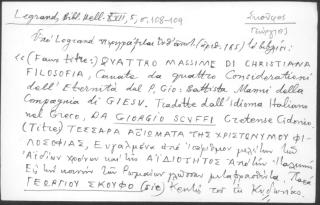 Legrand, Bibl. Hell. XVII, 5, σ. 108-109
Σκούφος
Γεώργιος
Ὑπὸ Legrand περιγράφεται ὑπ' ἀριθ.
« (Faux titre) QUATTRO MASSIME DI CHRISTIANA
FILOSOFIA, Cauate da quattro Considerationi
dell'Eternità del P. Gio: Battista Manni della
Compagnia di GIESV. Tradotte dall'Idioma Italiano
nel Greco, DA GIORGIO SCVFFI Cretense Cidonio,
(Titre) ΤΕΣΣΑΡΑ ΑΞΙΩΜΑΤΑ ΤΗΣ ΧΡΙΣΤΩΝΥΜΟΥ ΦΙ-
ΛΟΣΟΦΙΑΣ, Εὐγαλμένα ἀπὸ
Ἀϊδίων χρόνων καὶ τῆς ἈΪΔΙΟΤΗΤΟΣ Ἀπὸ τὴν Ἰταλικὴν
Εἰς τὴν κοινὴν τῶν Ῥωμαίων γλῶσσαν μεταφρασθέντα, Παρὰ
ΓΕΩΡΓΙΟΥ ΣΚΟΥΦΟ (sic) Κρητὸς τοῦ ἐκ Κυδωνίας.